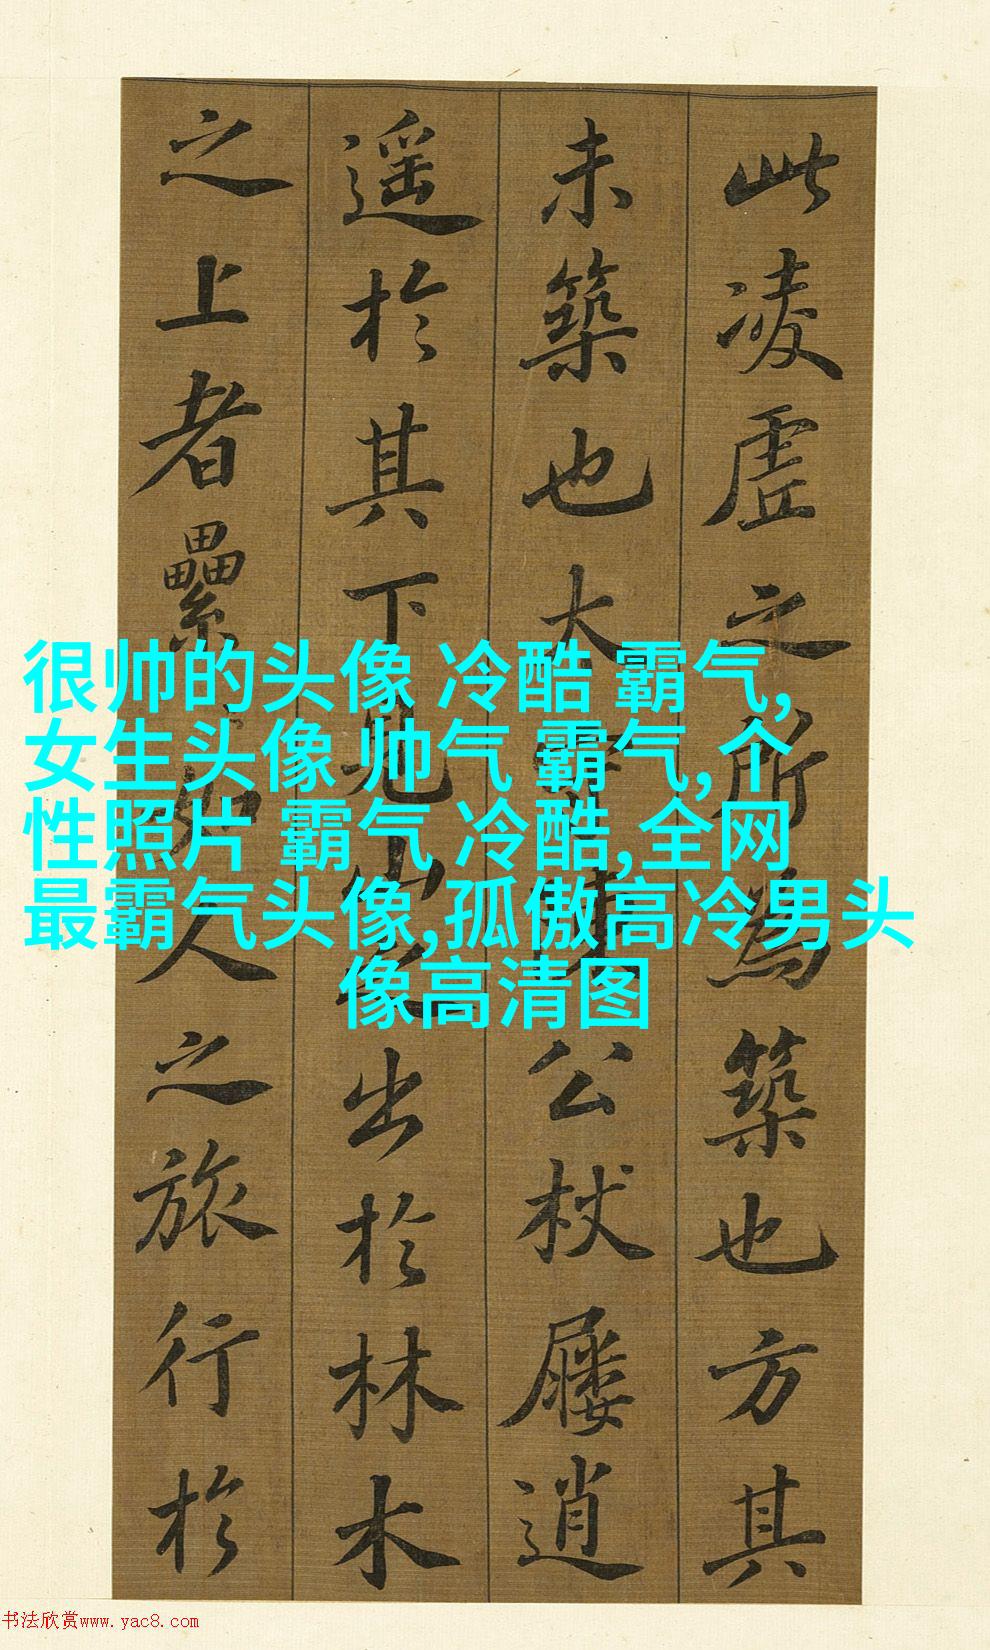 此凌虛之所為築也方其
未築也太守陳公杖屨逍
遥於其下見山之出於林木
之上者纍如人之旅行於
很帅的头像 冷酷 霸气,
女生头像 帅气 霸气,个
性照片 霸气 冷酷,全网
最霸气头像,孤傲高冷男头
像高清图
书法欣赏www.yac8.com